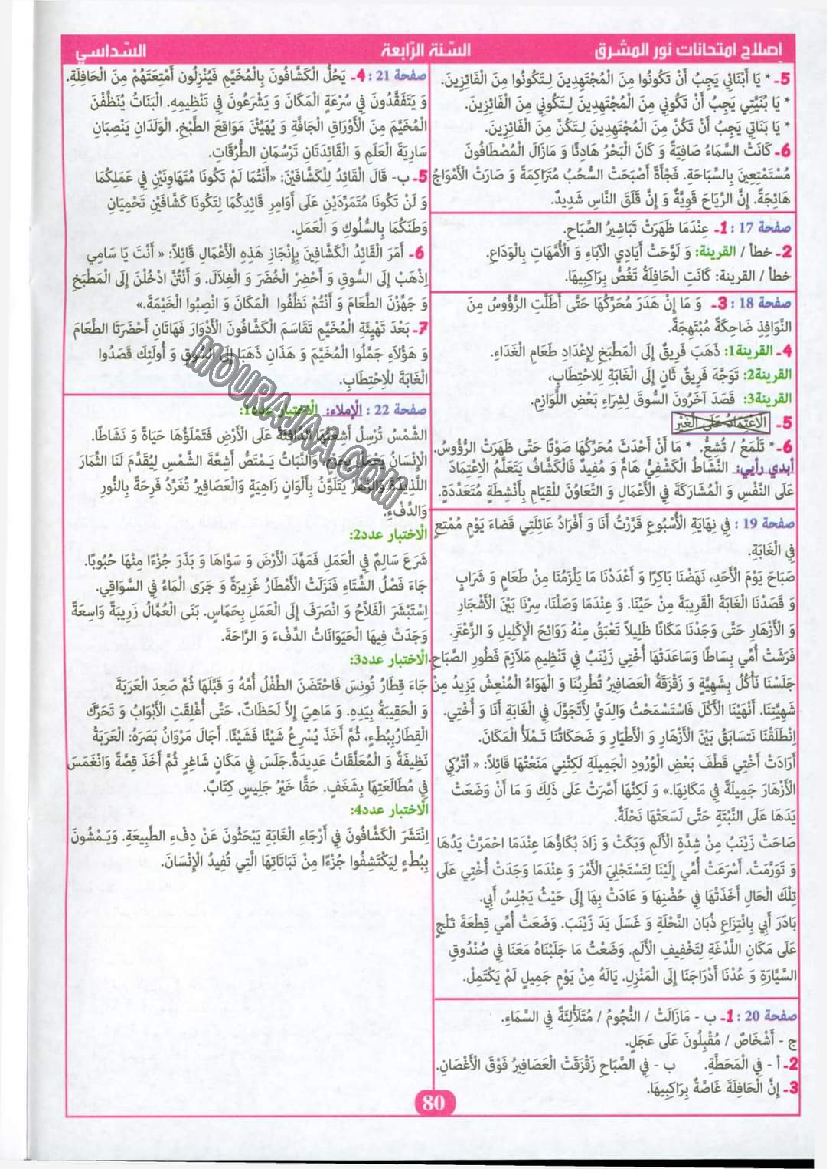 إصلاح امتحانات نور المشرق
السّنة الرّابعة
السّداسي
5- * يَا أَبْنَائِي يَجِبُ أَنْ تَكُونُوا مِنَ الْمُجْتَهِدِينَ لِتَكُونُوا مِنَ الْفَائِزِينَ.
* يَا بُنَيَّتِي يَجِبُ أَنْ تَكُونِي مِنَ الْمُجْتَهِدِينَ لِتَكُونِي مِنَ الْفَائِزِينَ.
* يَا بَنَاتِي يَجِبُ أَنْ تَكُنَّ مِنَ الْمُجْتَهِدِينَ لِتَكُنَّ مِنَ الْفَائِزِينَ.
6- كَانَتْ السَّمَاءُ صَافِيَةً وَ كَانَ الْبَحْرُ هَادِئًا وَ مَازَالَ الْمُصْطَافُونَ
مُسْتَمْتِعِينَ بِالسِّبَاحَةِ. فَجْأَةً أَصْبَحَتْ السُّحُبُ مُتَرَاكِمَةً وَ صَارَتْ الْأَمْوَاجُ
هَائِجَةً. إِنَّ الرِّيَاحَ قَوِيَّةٌ وَ إِنَّ قَلَقَ النَّاسِ شَدِيدٌ.
صفحة 17 : 1- عِنْدَمَا ظَهَرَتْ تَبَاشِيرُ الصَّبَاحِ.
2- خطأ / القرينة: وَ لَوَّحَتْ أَيَادِي الْآبَاءِ وَ الْأُمَّهَاتِ بِالْوَدَاعِ.
خطأ / القرينة: كَانَتِ الْحَافِلَةُ تَغُصُّ بِرَاكِبِيهَا.
صفحة 18 : 3- وَ مَا إِنْ هَدَرَ مُحَرِّكُهَا حَتَّى أَطَلَّتِ الرُّؤُوسُ مِنَ
النَّوَافِذِ ضَاحِكَةً مُبْتَهِجَةً.
4- القرينة1: ذَهَبَ فَرِيقٌ إِلَى الْمَطْبَخِ لِإِعْدَادِ طَعَامِ الْغَدَاءِ.
القرينة2: تَوَجَّهَ فَرِيقٌ ثَانٍ إِلَى الْغَابَةِ لِلاحْتِطَابِ.
القرينة3: قَصَدَ آخَرُونَ السُّوقَ لِشِرَاءِ بَعْضِ اللَّوَازِمِ.
5- الاعْتِمَادُ عَلَى الْغَيْرِ
6- * تَلْمَعُ / تُشِعُّ. * مَا أَنْ أَحْدَثَ مُحَرِّكُهَا صَوْتًا حَتَّى ظَهَرَتْ الرُّؤُوسُ.
أبدي رأيي: النَّشَاطُ الْكَشْفِيُّ هَامٌّ وَ مُفِيدٌ فَالْكَشَّافُ يَتَعَلَّمُ الاعْتِمَادَ
عَلَى النَّفْسِ وَ الْمُشَارَكَةَ فِي الْأَعْمَالِ وَ التَّعَاوُنَ لِلْقِيَامِ بِأَنْشِطَةٍ مُتَعَدِّدَةٍ.
صفحة 19 : فِي نِهَايَةِ الْأُسْبُوعِ قَرَّرْتُ أَنَا وَ أَفْرَادُ عَائِلَتِي قَضَاءَ يَوْمٍ مُمْتِعٍ
فِي الْغَابَةِ.
صَبَاحَ يَوْمِ الْأَحَدِ، نَهَضْنَا بَاكِرًا وَ أَعْدَدْنَا مَا يَلْزَمُنَا مِنْ طَعَامٍ وَ شَرَابٍ
وَ قَصَدْنَا الْغَابَةَ الْقَرِيبَةَ مِنْ حَيِّنَا. وَ عِنْدَمَا وَصَلْنَا، سِرْنَا بَيْنَ الْأَشْجَارِ
وَ الْأَزْهَارِ حَتَّى وَجَدْنَا مَكَانًا ظَلِيلاً تَعْبَقُ مِنْهُ رَوَائِحُ الْإِكْلِيلِ وَ الزَّعْتَرِ.
فَرَشَتْ أُمِّي بِسَاطًا وَسَاعَدَتْهَا أُخْتِي زَيْنَبُ فِي تَنْظِيمِ مَلَازِمِ فَطُورِ الصَّبَاحِ.
جَلَسْنَا نَأْكُلُ بِشَهِيَّةٍ وَ زَقْزَقَةُ الْعَصَافِيرِ تُطْرِبُنَا وَ الْهَوَاءُ الْمُنْعِشُ يَزِيدُ مِنْ
شَهِيَّتِنَا. أَنْهَيْنَا الْأَكْلَ فَاسْتَسْمَحْتُ وَالِدَيَّ لِأَتَجَوَّلَ فِي الْغَابَةِ أَنَا وَ أُخْتِي.
اِنْطَلَقْنَا نَتَسَابَقُ بَيْنَ الْأَزْهَارِ وَ الْأَطْيَارِ وَ ضَحَكَاتُنَا تَمْلَأُ الْمَكَانَ.
أَرَادَتْ أُخْتِي قَطْفَ بَعْضِ الْوُرُودِ الْجَمِيلَةِ لَكِنَّنِي مَنَعْتُهَا قَائِلاً: « اُتْرُكِي
الْأَزْهَارَ جَمِيلَةً فِي مَكَانِهَا.» وَ لَكِنَّهَا أَصَرَّتْ عَلَى ذَلِكَ وَ مَا أَنْ وَضَعَتْ
يَدَهَا عَلَى النَّبْتَةِ حَتَّى لَسَعَتْهَا نَحْلَةٌ.
صَاحَتْ زَيْنَبُ مِنْ شِدَّةِ الْأَلَمِ وَبَكَتْ وَ زَادَ بُكَاؤُهَا عِنْدَمَا احْمَرَّتْ يَدُهَا
وَ تَوَرَّمَتْ. أَسْرَعَتْ أُمِّي إِلَيْنَا لِتَسْتَجْلِيَ الْأَمْرَ وَ عِنْدَمَا وَجَدَتْ أُخْتِي عَلَى
تِلْكَ الْحَالِ أَخَذَتْهَا فِي حُضْنِهَا وَ عَادَتْ بِهَا إِلَى حَيْثُ يَجْلِسُ أَبِي.
بَادَرَ أَبِي بِانْتِزَاعِ ذُبَانِ النَّحْلَةِ وَ غَسَلَ يَدَ زَيْنَبَ. وَضَعَتْ أُمِّي قِطْعَةَ ثَلْجٍ
عَلَى مَكَانِ اللَّدْغَةِ لِتَخْفِيفِ الْأَلَمِ. وَضَعْتُ مَا جَلَبْنَاهُ مَعَنَا فِي صُنْدُوقِ
السَّيَّارَةِ وَ عُدْنَا أَدْرَاجَنَا إِلَى الْمَنْزِلِ. يَالَهُ مِنْ يَوْمٍ جَمِيلٍ لَمْ يَكْتَمِلْ.
صفحة 20 : 1- ب - مَازَالَتْ / النُّجُومُ / مُتَلَأْلِئَةً فِي السَّمَاءِ.
ج - أَشْخَاصٌ / مُقْبِلُونَ عَلَى عَجَلٍ.
2- أ - فِي الْمَحَطَّةِ. ب - فِي الصَّبَاحِ زَقْزَقَتْ الْعَصَافِيرُ فَوْقَ الْأَغْصَانِ.
3- إِنَّ الْحَافِلَةَ غَاصَّةٌ بِرَاكِبِيهَا.
صفحة 21 : 4- يَحُلُّ الْكَشَّافُونَ بِالْمُخَيَّمِ فَيُنْزِلُونَ أَمْتِعَتَهُمْ مِنَ الْحَافِلَةِ.
وَ يَتَفَقَّدُونَ فِي سُرْعَةٍ الْمَكَانَ وَ يَشْرَعُونَ فِي تَنْظِيمِهِ. الْبَنَاتُ يُنَظِّفْنَ
الْمُخَيَّمَ مِنَ الْأَوْرَاقِ الْجَافَّةِ وَ يُهَيِّئْنَ مَوَاقِعَ الطَّبْخِ. الْوَلَدَانِ يَنْصِبَانِ
سَارِيَةَ الْعَلَمِ وَ الْقَائِدَتَانِ تَرْسُمَانِ الطُّرُقَاتِ.
5- ب- قَالَ الْقَائِدُ لِلْكَشَّافَيْنِ: «أَنْتُمَا لَمْ تَكُونَا مُتَهَاوِنَيْنِ فِي عَمَلِكُمَا
وَ لَنْ تَكُونَا مُتَمَرِّدَيْنِ عَلَى أَوَامِرِ قَائِدِكُمَا لِتَكُونَا كَشَّافَيْنِ تَحْمِيَانِ
وَطَنَكُمَا بِالسُّلُوكِ وَ الْعَمَلِ.
6- أَمَرَ الْقَائِدُ الْكَشَّافِينَ بِإِنْجَازِ هَذِهِ الْأَعْمَالِ قَائِلاً: « أَنْتَ يَا سَامِي
اِذْهَبْ إِلَى السُّوقِ وَ أَحْضِرِ الْخُضَرَ وَ الْغِلَالَ. وَ أَنْتُنَّ ادْخُلْنَ إِلَى الْمَطْبَخِ
وَ جَهِّزْنَ الطَّعَامَ وَ أَنْتُمْ نَظِّفُوا الْمَكَانَ وَ انْصِبُوا الْخَيْمَةَ.»
7- بَعْدَ تَهْيِئَةِ الْمُخَيَّمِ تَقَاسَمَ الْكَشَّافُونَ الْأَدْوَارَ فَهَاتَانِ أَحْضَرَتَا الطَّعَامَ
وَ هَؤُلَاءِ جَمَّلُوا الْمُخَيَّمَ وَ هَذَانِ ذَهَبَا إِلَى السُّوقِ وَ أُولَئِكَ قَصَدُوا
الْغَابَةَ لِلاِحْتِطَابِ.
صفحة 22 : الإملاء: الْاختبار عدد1:
الشَّمْسُ تُرْسِلُ أَشِعَّتَهَا الدَّافِئَةَ عَلَى الْأَرْضِ فَتَمْلَؤُهَا حَيَاةً وَ نَشَاطًا.
الْإِنْسَانُ يَعْمَلُ وَالنَّبَاتُ يَمْتَصُّ أَشِعَّةَ الشَّمْسِ لِيُقَدِّمَ لَنَا الثِّمَارَ
اللَّذِيذَةَ وَالزَّهْرُ يَتَلَوَّنُ بِأَلْوَانٍ زَاهِيَةٍ وَالْعَصَافِيرُ تُغَرِّدُ فَرِحَةً بِالنُّورِ
وَالدِّفْءِ.
الْاختبار عدد2:
شَرَعَ سَالِمٌ فِي الْعَمَلِ فَمَهَّدَ الْأَرْضَ وَ سَوَّاهَا وَ بَذَرَ جُزْءًا مِنْهَا حُبُوبًا.
جَاءَ فَصْلُ الشِّتَاءِ فَنَزَلَتْ الْأَمْطَارُ غَزِيرَةً وَ جَرَى الْمَاءُ فِي السَّوَاقِي.
اِسْتَبْشَرَ الْفَلَّاحُ وَ انْصَرَفَ إِلَى الْعَمَلِ بِحَمَاسٍ. بَنَى الْعُمَّالُ زَرِيبَةً وَاسِعَةً
وَجَدَتْ فِيهَا الْحَيَوَانَاتُ الدِّفْءَ وَ الرَّاحَةَ.
الْاختبار عدد3:
جَاءَ قِطَارُ تُونِسَ فَاحْتَضَنَ الطِّفْلُ أُمَّهُ وَ قَبَّلَهَا ثُمَّ صَعِدَ الْعَرَبَةَ
وَ الْحَقِيبَةُ بِيَدِهِ. وَ مَاهِيَ إِلاَّ لَحَظَاتٌ، حَتَّى أُغْلِقَتْ الْأَبْوَابُ وَ تَحَرَّكَ
الْقِطَارُ بِبُطْءٍ، ثُمَّ أَخَذَ يُسْرِعُ شَيْئًا فَشَيْئًا. أَجَالَ مَرْوَانُ بَصَرَهُ: الْعَرَبَةُ
نَظِيفَةٌ وَ الْمُعَلَّقَاتُ عَدِيدَةٌ.جَلَسَ فِي مَكَانٍ شَاغِرٍ ثُمَّ أَخَذَ قِصَّةً وَانْغَمَسَ
فِي مُطَالَعَتِهَا بِشَغَفٍ. حَقًّا خَيْرُ جَلِيسٍ كِتَابٌ.
الْاختبار عدد4:
اِنْتَشَرَ الْكَشَّافُونَ فِي أَرْجَاءِ الْغَابَةِ يَبْحَثُونَ عَنْ دِفْءِ الطَّبِيعَةِ. وَيَمْشُونَ
بِبُطْءٍ لِيَكْتَشِفُوا جُزْءًا مِنْ نَبَاتَاتِهَا الَّتِي تُفِيدُ الْإِنْسَانَ.
MOURAJAA.COM
80